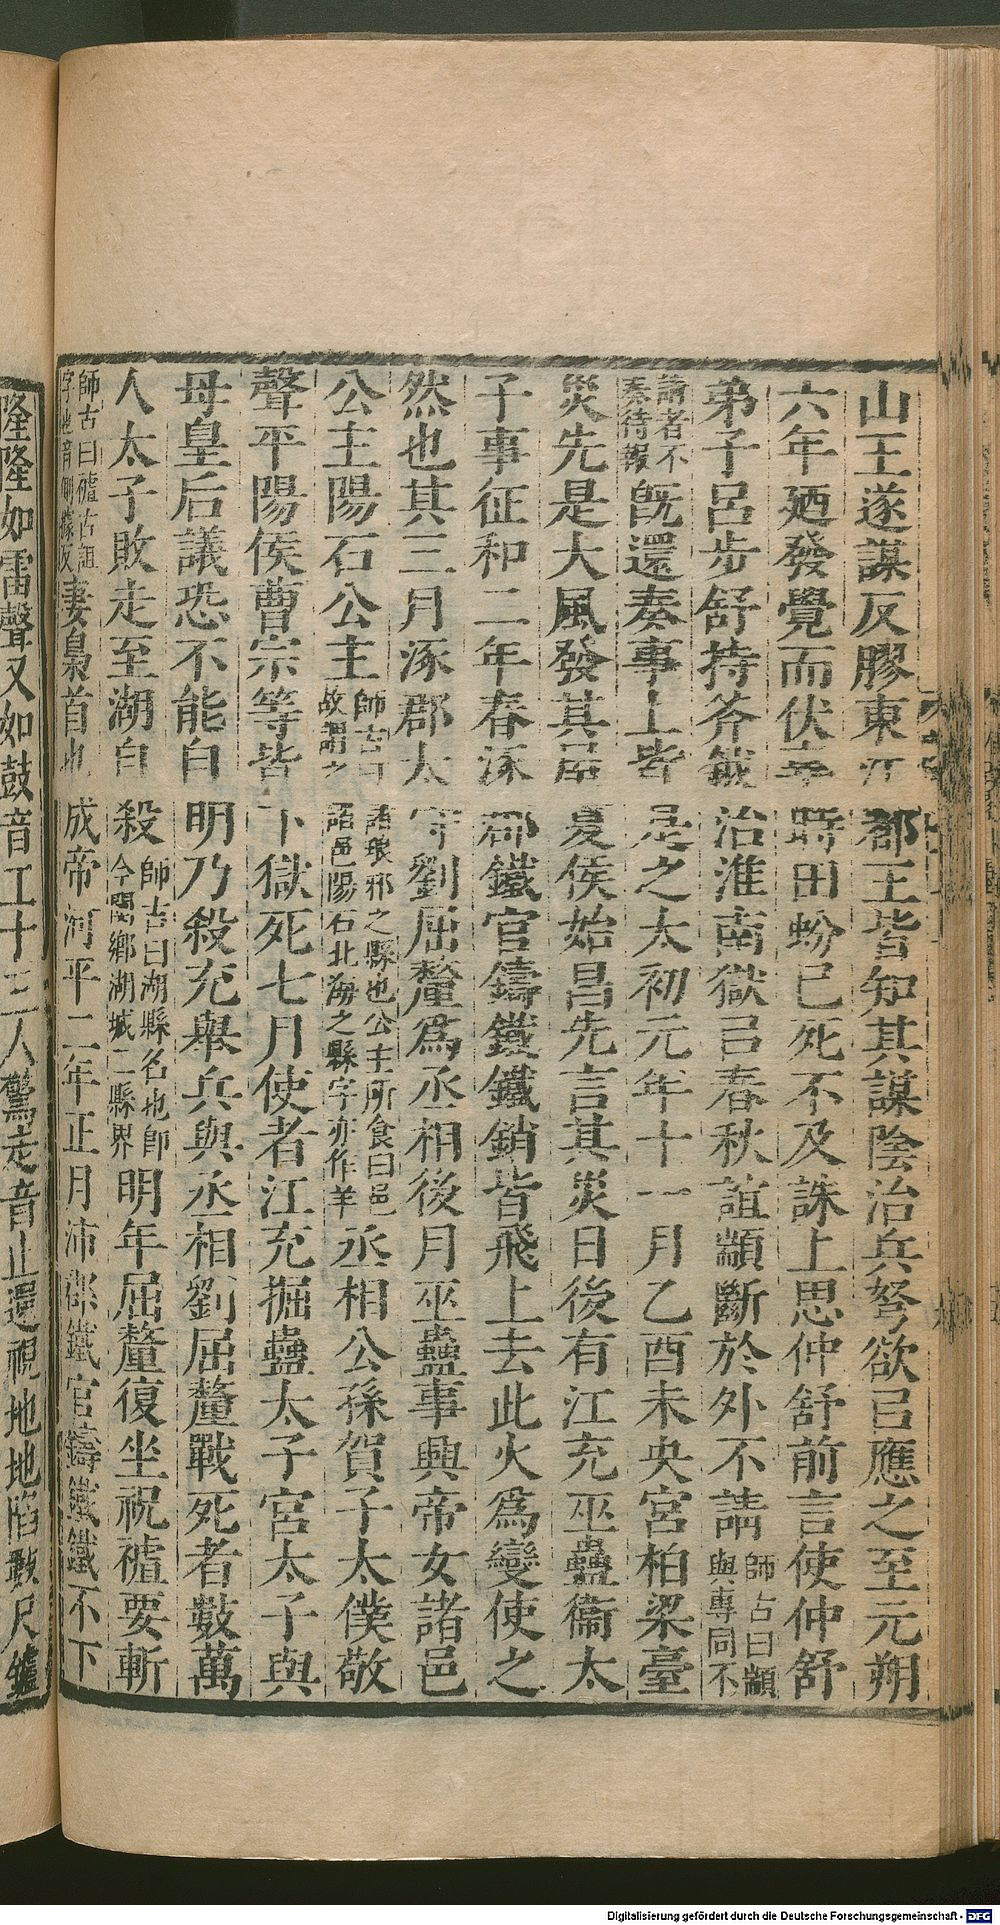 山王遂謀反膠東江都王皆知其謀陰治兵弩欲㠯應之至元朔
六年廼發覺而伏辜時田蚡已死不及誅上思仲舒前言使仲舒
弟子呂步舒持斧鉞治淮南獄㠯春秋誼顓斷於外不請師古曰顓與專同不
請者不奏待報旣還奏事上皆是之太初元年十一月乙酉未央宮柏梁臺
災先是大風發其屋夏侯始昌先言其災日後有江充巫蠱衞太
子事征和二年春涿郡鐵官鑄鐵鐵銷皆飛上去此火爲變使之
然也其三月涿郡太守劉屈氂爲丞相後月巫蠱事興帝女諸邑
公主陽石公主師古曰諸琅邪之縣也公主所食曰邑故謂之諸邑陽石北海之縣字亦作羊丞相公孫賀子太僕敬
聲平陽侯曹宗等皆下獄死七月使者江充掘蠱太子宮太子與
母皇后議恐不能自明乃殺充舉兵與丞相劉屈氂戰死者數萬
人太子敗走至湖自殺師古曰湖縣名也卽今閿鄉湖城二縣界明年屈氂復坐祝䄏要斬
師古曰䄏古詛字也音側據反妻梟首也成帝河平二年正月沛郡鐵官鑄鐵鐵不下
隆隆如雷聲又如鼓音工十三人驚走音止還視地地陷數尺鑪
Digitalisierung gefördert durch die Deutsche Forschungsgemeinschaft - DFG